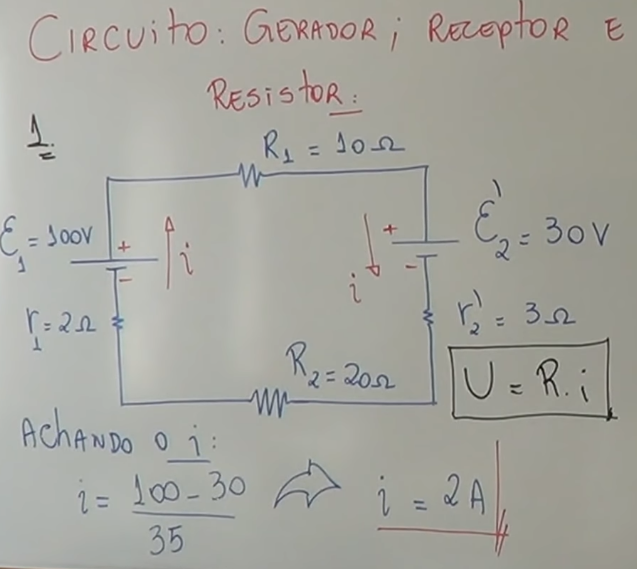 CIRCUITO: GERADOR; RECEPTOR E
RESISTOR:
1.
R₁ = 10Ω
Ɛ₁ = 100V
+
-
i
r₁ = 2Ω
i
+
-
Ɛ'₂ = 30V
r'₂ = 3Ω
R₂ = 20Ω
U = R.i
AChANDO O i:
i = 100 - 30 / 35 ⇨ i = 2A